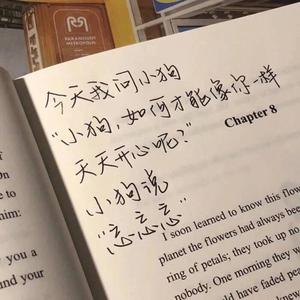 PARAMOUNT
METROPOLIS
今天我问小狗
"小狗,如何才能像你一样
天天开心呢?"
小狗说
"忘忘忘"
Chapter 8
I soon learned to know this flow
planet the flowers had always been
ring of petals; they took up no
nobody. One morning they wo
ould have faded pe
to
him:
you a
ound your